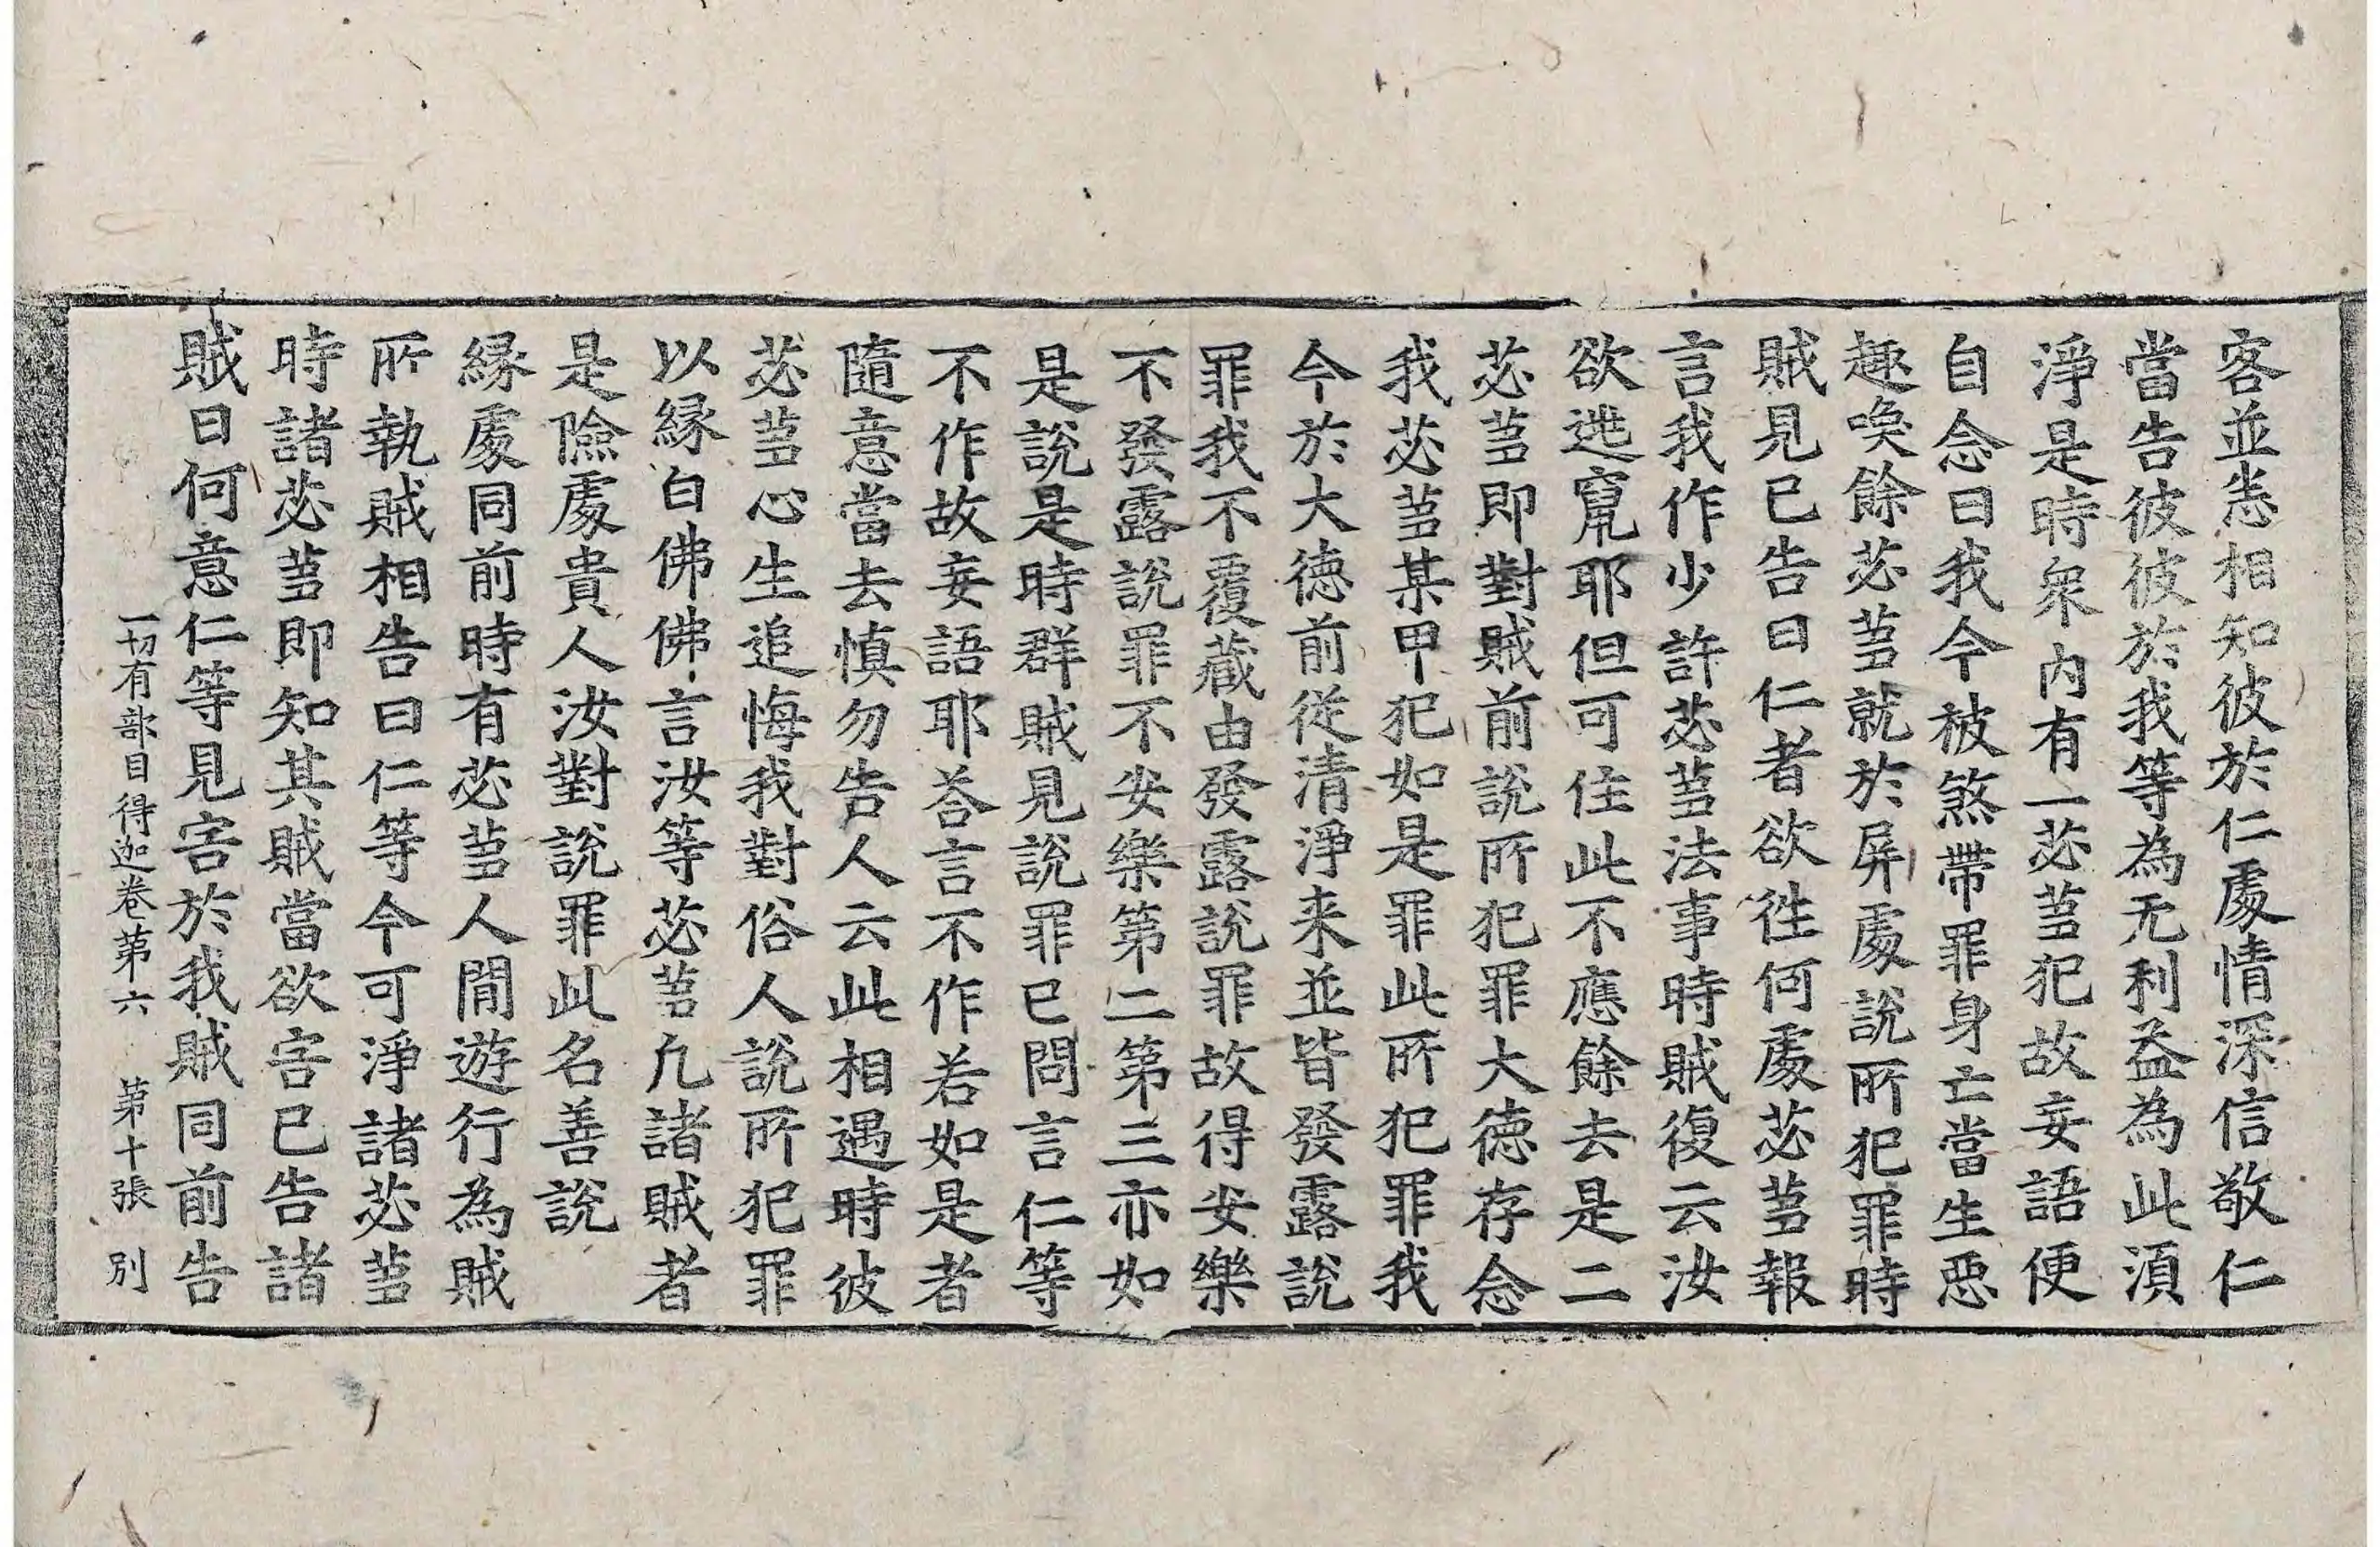 客並悉相知彼於仁處情深信敬仁
當告彼彼於我等為无利益為此湏
淨是時衆内有一苾蒭犯故妄語便
自念曰我今被煞帶罪身亡當生惡
趣喚餘苾蒭就於屏處說所犯罪時
賊見已告曰仁者欲往何處苾蒭報
言我作少許苾蒭法事時賊復云汝
欲逃竄耶但可住此不應餘去是二
苾蒭即對賊前說所犯罪大德存念
我苾蒭某甲犯如是罪此所犯罪我
今於大德前從清淨来並皆發露說
罪我不覆藏由發露說罪故得安樂
不發露說罪不安樂第二第三亦如
是說是時群賊見說罪已問言仁等
不作故妄語耶荅言不作若如是者
隨意當去慎勿告人云此相遇時彼
苾蒭心生追悔我對俗人說所犯罪
以緣白佛佛言汝等苾蒭凡諸賊者
是險處貴人汝對說罪此名善說
緣處同前時有苾蒭人間遊行為賊
所執賊相告曰仁等今可淨諸苾蒭
時諸苾蒭即知其賊當欲害已告諸
賊曰何意仁等見害於我賊同前告
一切有部目得迦卷第六 第十張 別